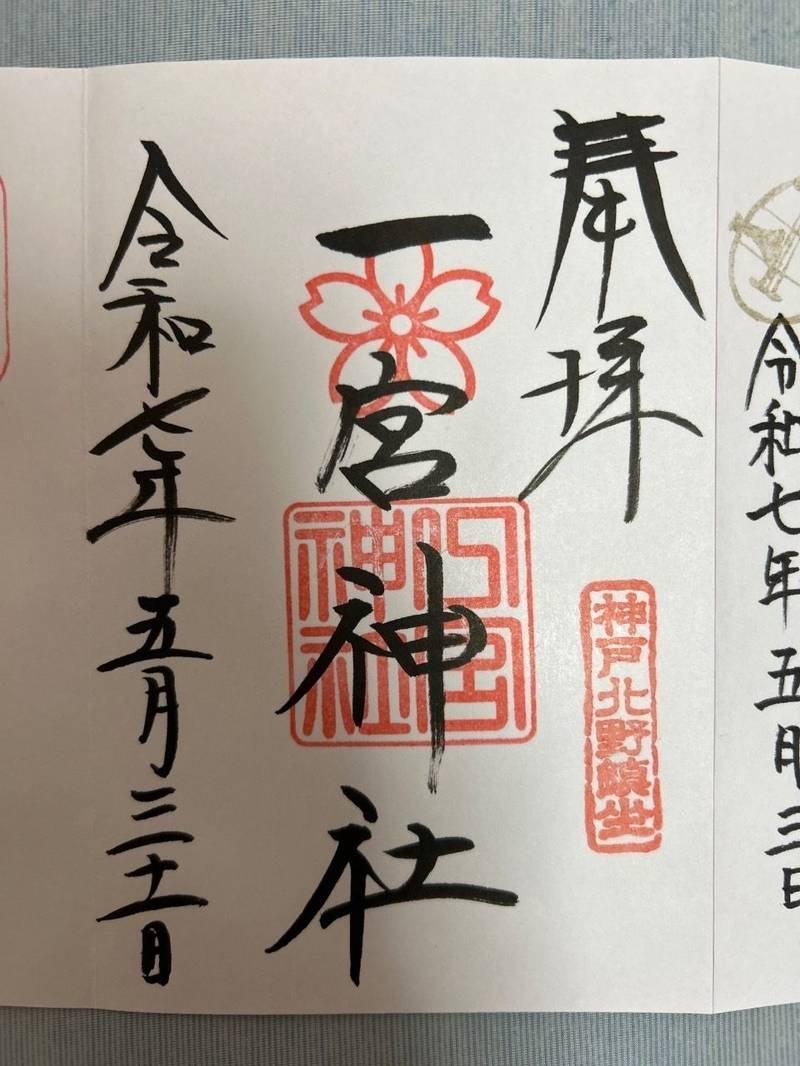 令和七年五月三日
奉拝
神戸北野鎮坐
一宮神社
宮
神社
令和七年五月三十一日